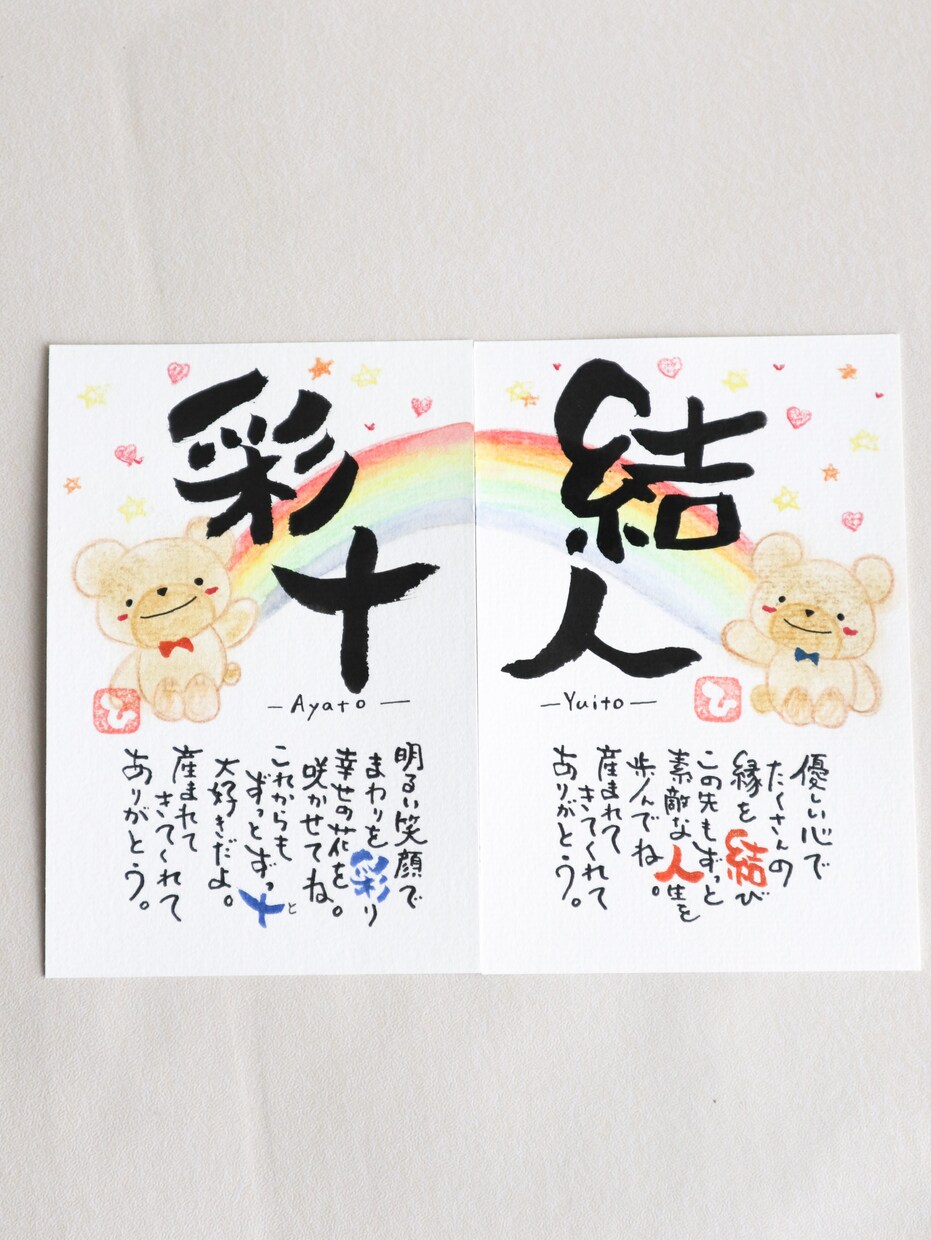 結人
-Yuito-
優しい心で
たくさんの
縁を結び
この先もずっと
素敵な人生を
歩んでね。
産まれて
きてくれて
ありがとう。
ひ
彩十
-Ayato-
明るい笑顔で
まわりを彩り
幸せの花を
咲かせてね。
これからも
ずっとずっ十と
大好きだよ。
産まれて
きてくれて
ありがとう。
ひ